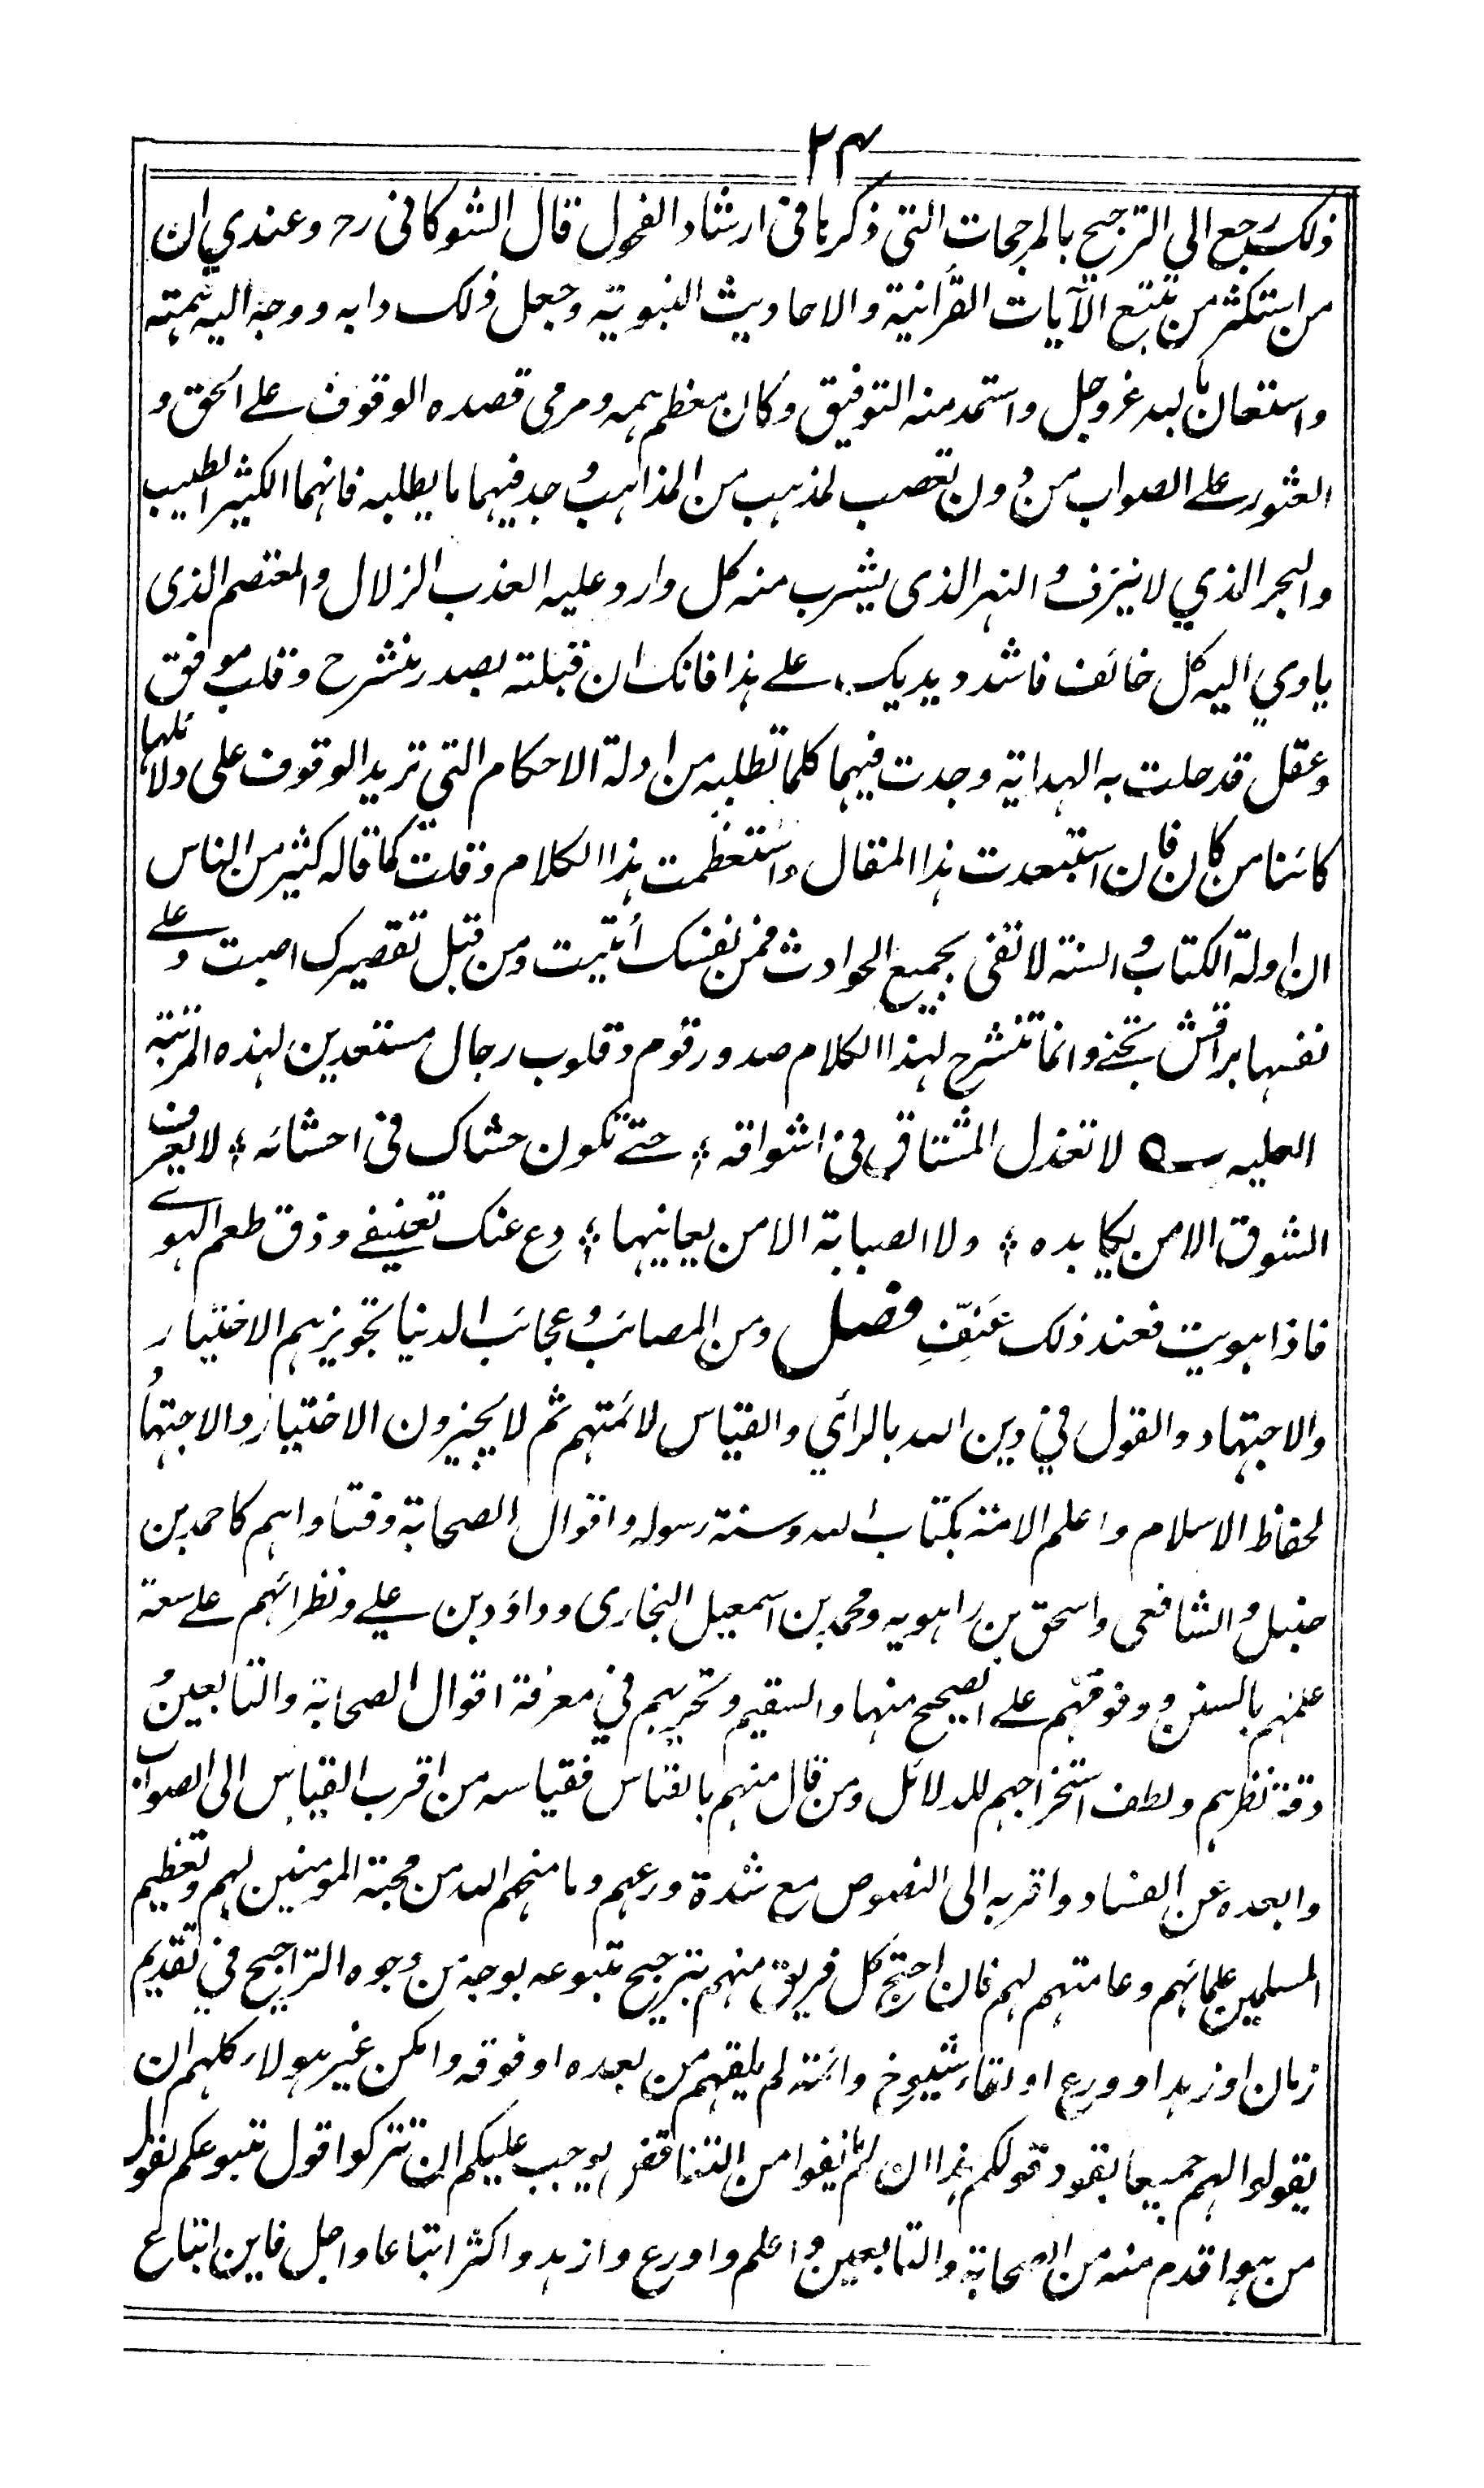 ٢٤
ذلك رجع الى الترجيح بالمرجحات التي ذكرنا في ارشاد الفحول قال الشوكاني رح وعندي ان
من استكثر من تتبع الآيات القرآنية والاحاديث النبوية وجعل ذلك دابه ووجه اليه همته
واستعان بالله عز وجل واستمد منه التوفيق وكان معظم همه ومرمى قصده الوقوف على الحق و
العثور على الصواب من دون تعصب لمذهب من المذاهب وجد فيهما ما يطلبه فانهما الكثير الطيب
والبحر الذي لا ينزف والنهر الذي يشرب منه كل وارد عليه العذب الزلال والمعتصم الذي
ياوي اليه كل خائف فاشدد يديك على هذا فانك ان قبلته بصدر منشرح وقلب موفق
وعقل قد حلت به الهداية وجدت فيهما كلما تطلبه من ادلة الاحكام التي تريد الوقوف على دلائلها
كائنا من كان فان استبعدت هذا المقال واستعظمت هذا الكلام وقلت كما قاله كثير من الناس
ان ادلة الكتاب والسنة لا تفي بجميع الحوادث فمن نفسك أتيت ومن قبل تقصيرك اصبت وعلى
نفسها براقش تجني وانما تنشرح لهذا الكلام صدور قوم وقلوب رجال مستعدين لهذه المرتبة
العليه لا تعذل المشتاق في اشواقه ؛ حتى تكون حشاك في احشائه ؛ لا يعرف
الشوق الا من يكابده ؛ ولا الصبابة الا من يعانيها ؛ دع عنك تعنيفي وذق طعم الهوى
فاذا هويت فعند ذلك عَنِّفِ فصل ومن المصائب وعجائب الدنيا تجويزهم الاختيار
والاجتهاد والقول في دين الله بالرأي والقياس لائمتهم ثم لا يجيزون الاختيار والاجتهاد
لحفاظ الاسلام واعلم الامة بكتاب الله وسنة رسوله واقوال الصحابة وفتاواهم كاحمد بن
حنبل والشافعي واسحق بن راهويه ومحمد بن اسمعيل البخاري وداؤد بن علي ونظرائهم على سعة
علمهم بالسنن ووقوفهم على الصحيح منها والسقيم وتحريهم في معرفة اقوال الصحابة والتابعين و
دقة نظرهم ولطف استخراجهم للدلائل ومن قال منهم بالقياس فقياسه من اقرب القياس الى الصواب
وابعده عن الفساد واقربه الى النصوص مع شدة ورعهم وما منحهم الله من محبة المومنين لهم وتعظيم
المسلمين علمائهم وعامتهم لهم فان احتج كل فريق منهم بترجيح متبوعه بوجه من وجوه التراجيح في تقديم
زمان او زهد او ورع او لقاء شيوخ وائمة لم يلقهم من بعده او فوقه وامكن غير هولاء كلهم ان
يقولوا لهم جميعا نقود قولكم هذا ان لم تانفوا من التناقض يوجب عليكم ان تتركوا قول متبوعكم لقول
من هو اقدم منه من الصحابة والتابعين واعلم واورع وازهد واكثر اتباعا واجل فاين اتباع